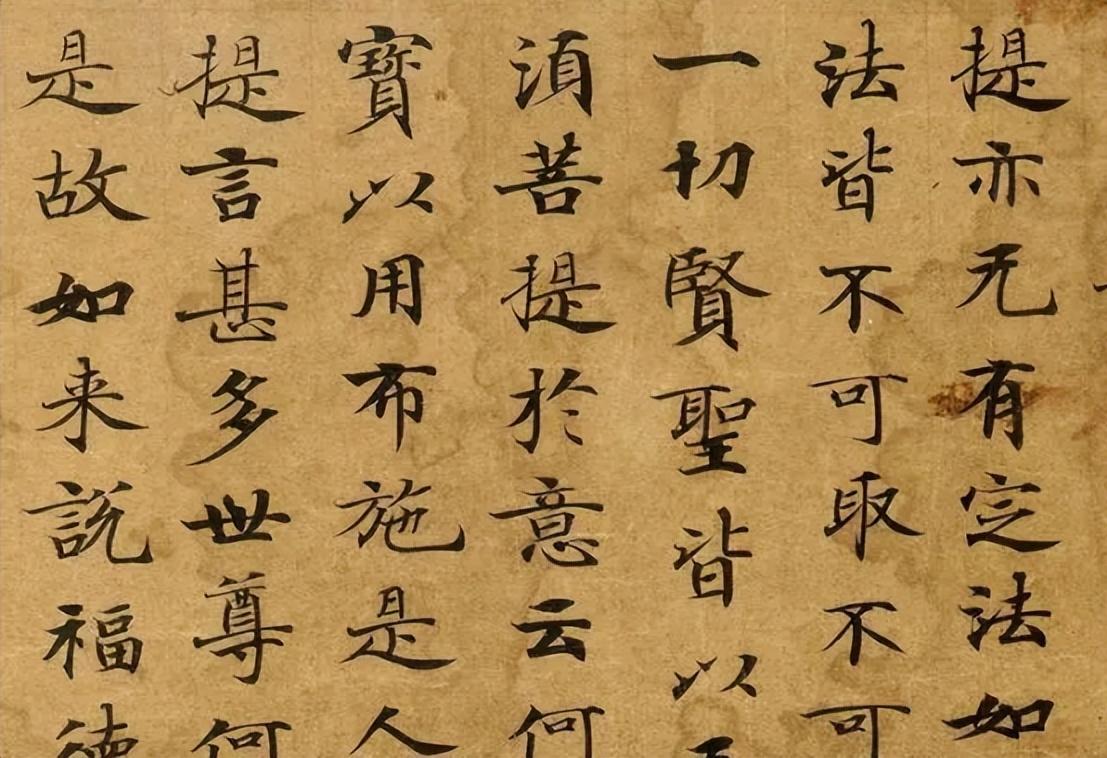 提亦无有定法如
法皆不可取不可
一切賢聖皆以
湏菩提於意云何
寶以用布施是人
提言甚多世尊何
是故如来說福德